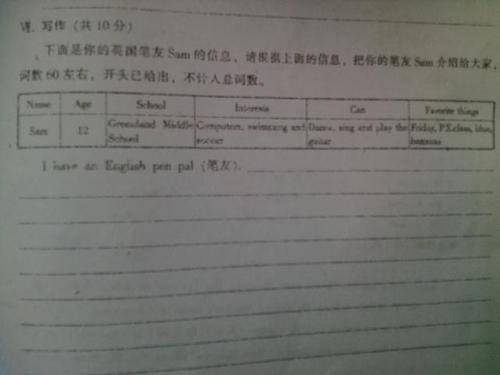 写作（共 10 分）
下面是你的英国笔友 Sam 的信息，请根据上面的信息，把你的笔友 Sam 介绍给大家，
词数 60 左右，开头已给出，不计入总词数。
Name Age School Interests Can Favorite things
Sam 12 Greenland Middle School Computers, swimming and soccer Dance, sing and play the guitar Friday, P.E.class, blue, bananas
I have an English pen pal (笔友).